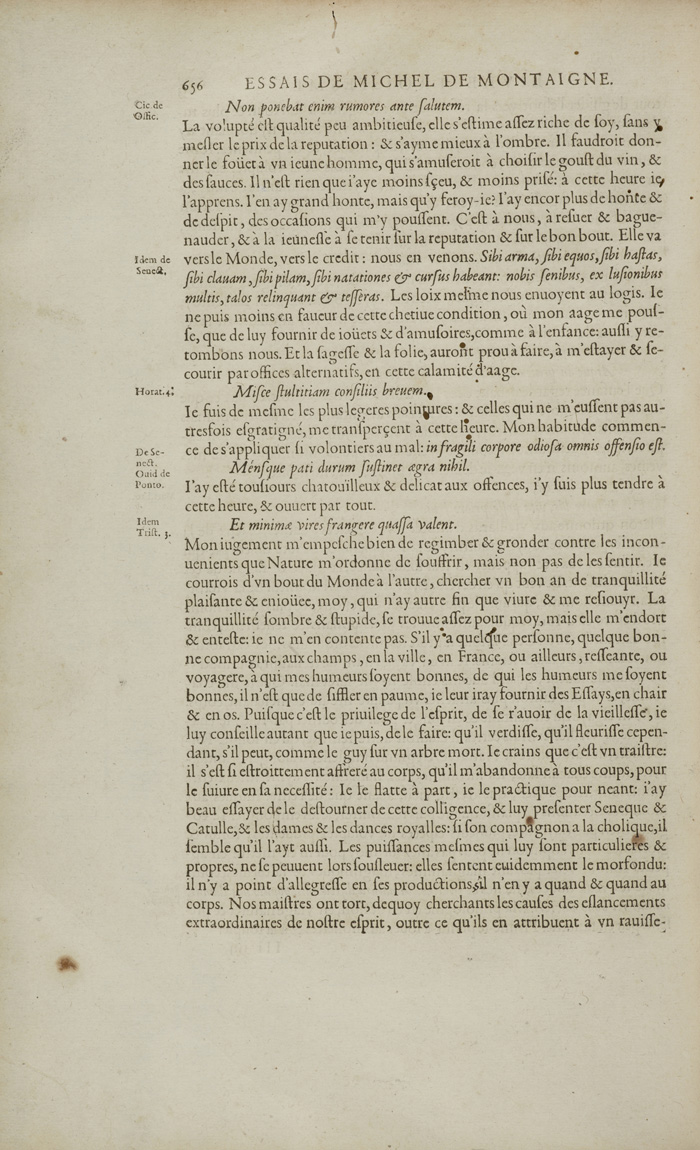 656 ESSAIS DE MICHEL DE MONTAIGNE.
Cic. de
Offic.
Non ponebat enim rumores ante ſalutem.
La volupté eſt qualité peu ambitieuſe, elle s'eſtime aſſez riche de ſoy, ſans y
meſler le prix de la reputation : & s'ayme mieux à l'ombre. Il faudroit don-
ner le foüet à vn ieune homme, qui s'amuſeroit à choiſir le gouſt du vin, &
des ſauces. Il n'eſt rien que i'aye moins ſçeu, & moins priſé: à cette heure ie
l'apprens. I'en ay grand honte, mais qu'y feroy-ie? I'ay encor plus de honte &
de deſpit, des occaſions qui m'y pouſſent. C'eſt à nous, à reſuer & bague-
nauder, & à la ieuneſſe à ſe tenir ſur la reputation & ſur le bon bout. Elle va
Idem de
Senect.
vers le Monde, vers le credit : nous en venons. Sibi arma, ſibi equos, ſibi haſtas,
ſibi clauam, ſibi pilam, ſibi natationes & curſus habeant: nobis ſenibus, ex luſionibus
multis, talos relinquant & teſſeras. Les loix meſme nous enuoyent au logis. Ie
ne puis moins en faueur de cette chetiue condition, où mon aage me pouſ-
ſe, que de luy fournir de ioüets & d'amuſoires, comme à l'enfance: auſſi y re-
tombons nous. Et la ſageſſe & la folie, auront prou à faire, à m'eſtayer & ſe-
courir par offices alternatifs, en cette calamité d'aage.
Horat. 4.
Miſce ſtultitiam conſiliis breuem.
Ie fuis de meſme les plus legeres pointures : & celles qui ne m'euſſent pas au-
tresfois eſgratigné, me tranſperçent à cette heure. Mon habitude commen-
ce de s'appliquer ſi volontiers au mal: in fragili corpore odioſa omnis offenſio eſt.
De Se-
nect.
Ouid de
Ponto.
Ménſque pati durum ſuſtinet ægra nihil.
I'ay eſté touſiours chatoüilleux & delicat aux offences, i'y ſuis plus tendre à
cette heure, & ouuert par tout.
Idem
Triſt. 3.
Et minimæ vires frangere quaſſa valent.
Mon iugement m'empeſche bien de regimber & gronder contre les incon-
uenients que Nature m'ordonne de ſouffrir, mais non pas de les ſentir. Ie
courrois d'vn bout du Monde à l'autre, chercher vn bon an de tranquillité
plaiſante & enioüee, moy, qui n'ay autre fin que viure & me reſiouyr. La
tranquillité ſombre & ſtupide, ſe trouue aſſez pour moy, mais elle m'endort
& enteſte: ie ne m'en contente pas. S'il y a quelque perſonne, quelque bon-
ne compagnie, aux champs, en la ville, en France, ou ailleurs, reſſeante, ou
voyagere, à qui mes humeurs ſoyent bonnes, de qui les humeurs me ſoyent
bonnes, il n'eſt que de ſiffler en paume, ie leur iray fournir des Eſſays, en chair
& en os. Puiſque c'eſt le priuilege de l'eſprit, de ſe r'auoir de la vieilleſſe, ie
luy conſeille autant que ie puis, de le faire: qu'il verdiſſe, qu'il fleuriſſe cepen-
dant, s'il peut, comme le guy ſur vn arbre mort. Ie crains que c'eſt vn traiſtre:
il s'eſt ſi eſtroittement affreré au corps, qu'il m'abandonne à tous coups, pour
le ſuiure en ſa neceſſité: Ie le flatte à part, ie le practique pour neant: i'ay
beau eſſayer de le deſtourner de cette colligence, & luy preſenter Seneque &
Catulle, & les dames & les dances royalles: ſi ſon compagnon a la cholique, il
ſemble qu'il l'ayt auſſi. Les puiſſances meſmes qui luy ſont particulieres &
propres, ne ſe peuuent lors ſouſleuer: elles ſentent euidemment le morfondu:
il n'y a point d'allegreſſe en ſes productions, s'il n'en y a quand & quand au
corps. Nos maiſtres ont tort, dequoy cherchants les cauſes des eſlancements
extraordinaires de noſtre eſprit, outre ce qu'ils en attribuent à vn rauiſſe-